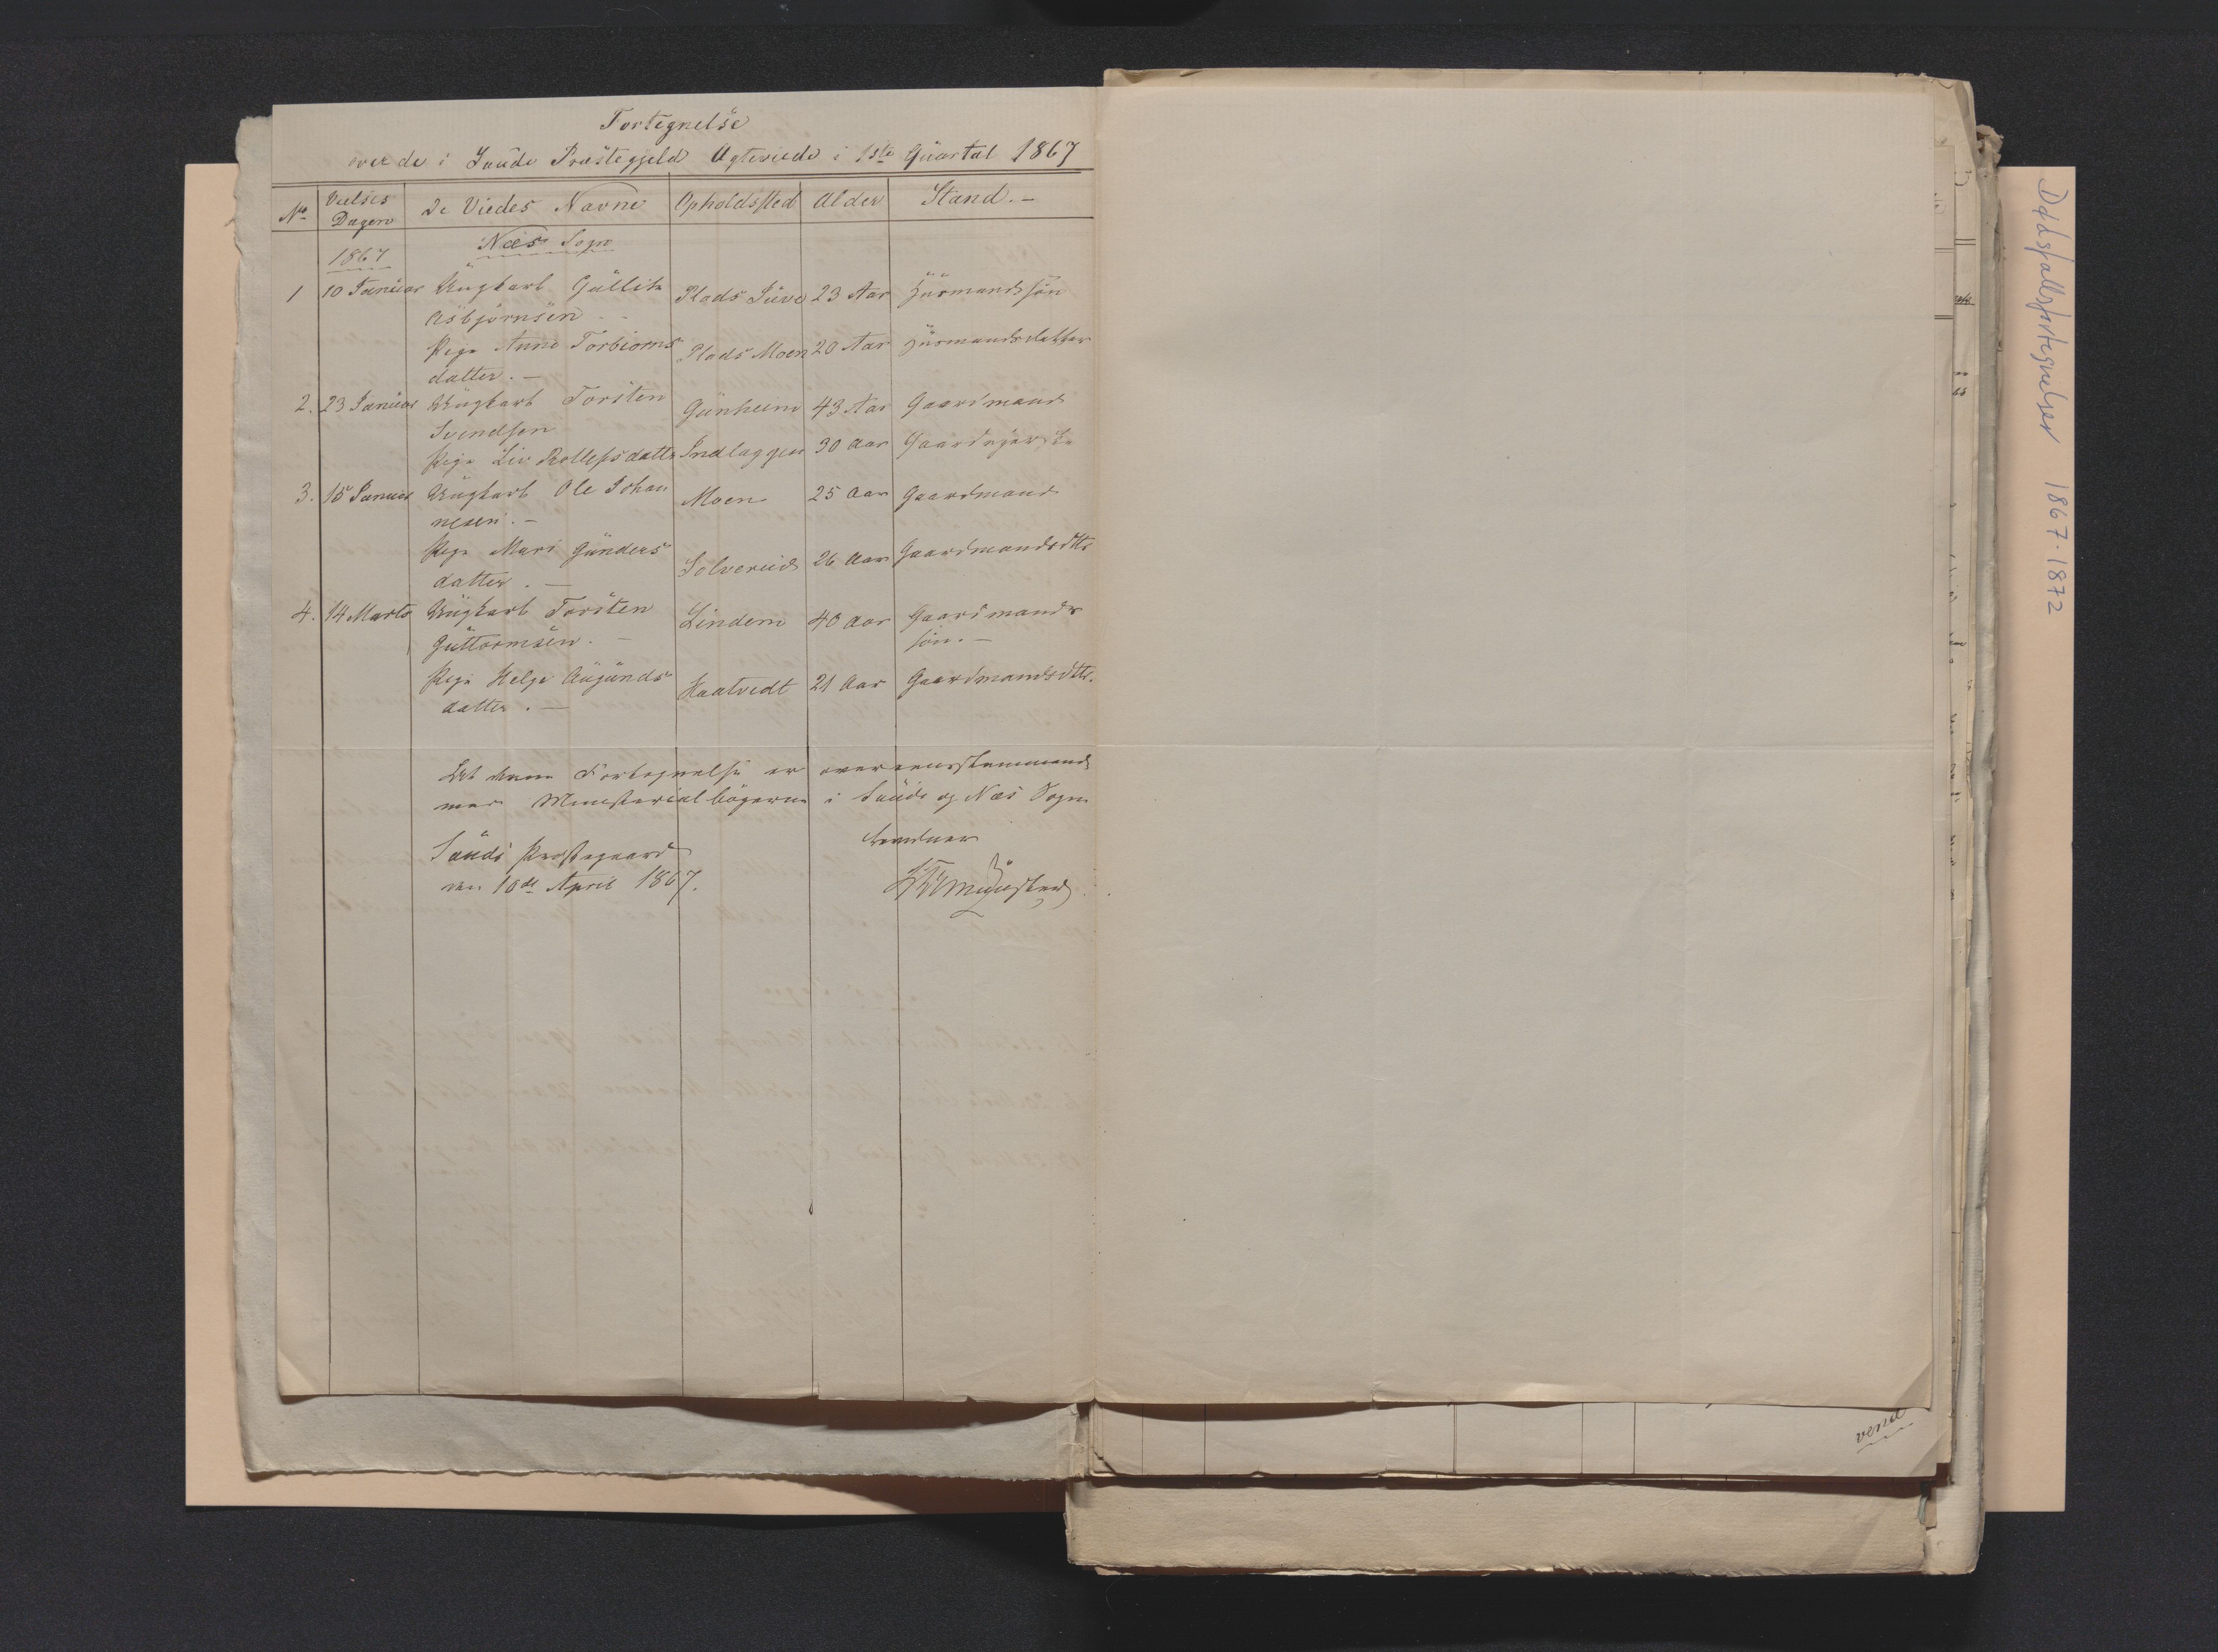 Fortegnelse
over de i Saude Præstegjeld Ægteviede i 1ste Quartal 1867
No Vielses Dagene De Viedes Navne Opholdssted Alder Stand.-
1867 Næs Sogn
1 10 Januar Ungkarl Gullik Plads Süve 23 Aar Huusmandssøn
Asbjørnsen
Pige Anne Torbiorns Plads Moen 20 Aar Huusmandsdatter
datter.-
2. 23 Januar Ungkarl Torsten Gunheim 43 Aar Gaardmand
Svendsen
Pige Liv Rollefsdatter Indlaggen 30 Aar
3. 15 Januar Ungkarl Ole Johan Moen 25 Aar Gaardmand
nesen.-
Pige Mari Gunders Solverud 26 Aar Gaardmandsdttr
datter.-
4. 14 Marts Ungkarl Torsten Lindem 40 Aar Gaardmands
Guttormsen.- søn.-
Pige Helge Augunds Haatvedt 21 Aar Gaardmandsdttr.
datter.-
At denne Fortegnelse er overeensstemmende
med Ministerialbøgerne i Saude og Næs Sogne
bevidner
Saude Præstegaard
den 10de April 1867. Münster
vend
Dødsfallsfortegnelser 1867-1872